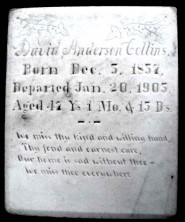 David Anderson Collins,
Born Dec. 5, 1857,
Departed Jan. 20, 1905
Aged 47 Ys 1 Mo. & 15 Ds.
We miss thy kind and willing hand,
Thy fond and earnest care,
Our home is sad without thee—
We miss thee everywhere